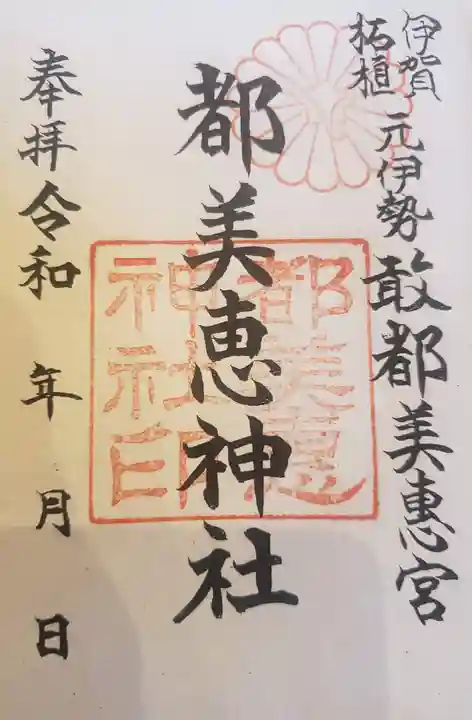 伊賀
柘植
元伊勢敢都美恵宮
都美恵神社
都美恵
神社印
奉拝令和 年 月 日